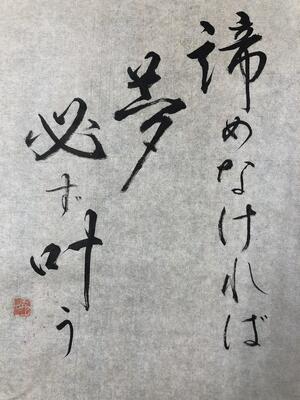 諦めなければ
夢
必ず叶う